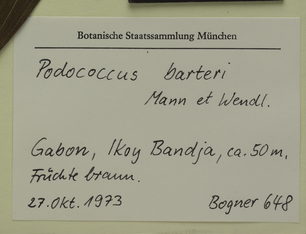 Botanische Staatssammlung München
Podococcus barteri
Mann et Wendl.
Gabon, Ikoy Bandja, ca. 50 m.
Früchte braun.
27. Okt. 1973 Bogner 648